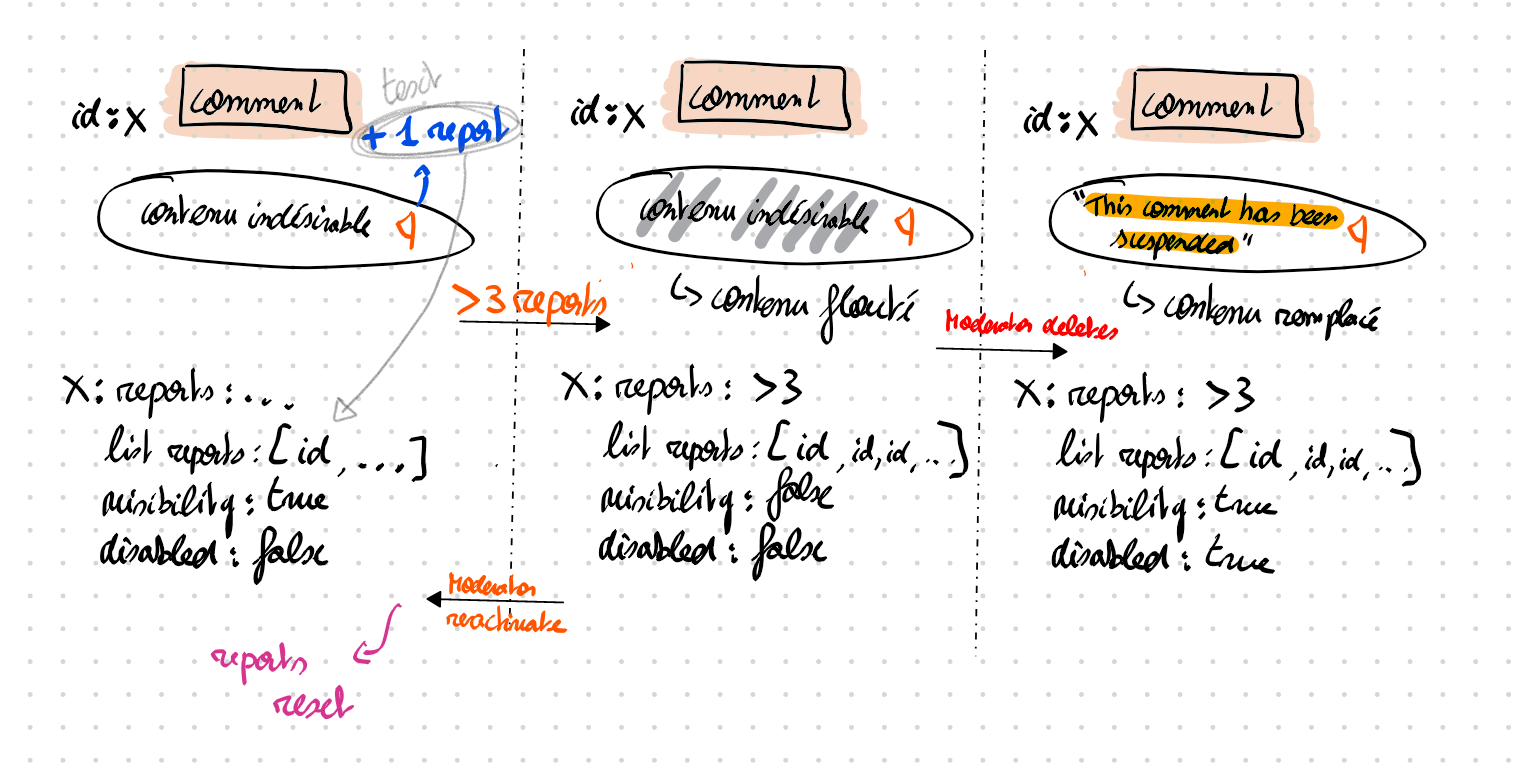 id:X
comment
+ 1 report
contenu indésirable
> 3 reports
X: reports : ...
list reports: [id, ...]
visibility : true
disabled : false
Moderator
reactivate
reports
reset
id:X
comment
contenu indésirable
↳ contenu flouté
Moderator deletes
X: reports : >3
list reports: [id, id, id, ..]
visibility : false
disabled : false
id:X
comment
"This comment has been
suspended"
↳ contenu remplacé
X: reports : >3
list reports: [id, id, id, ..]
visibility : true
disabled : true